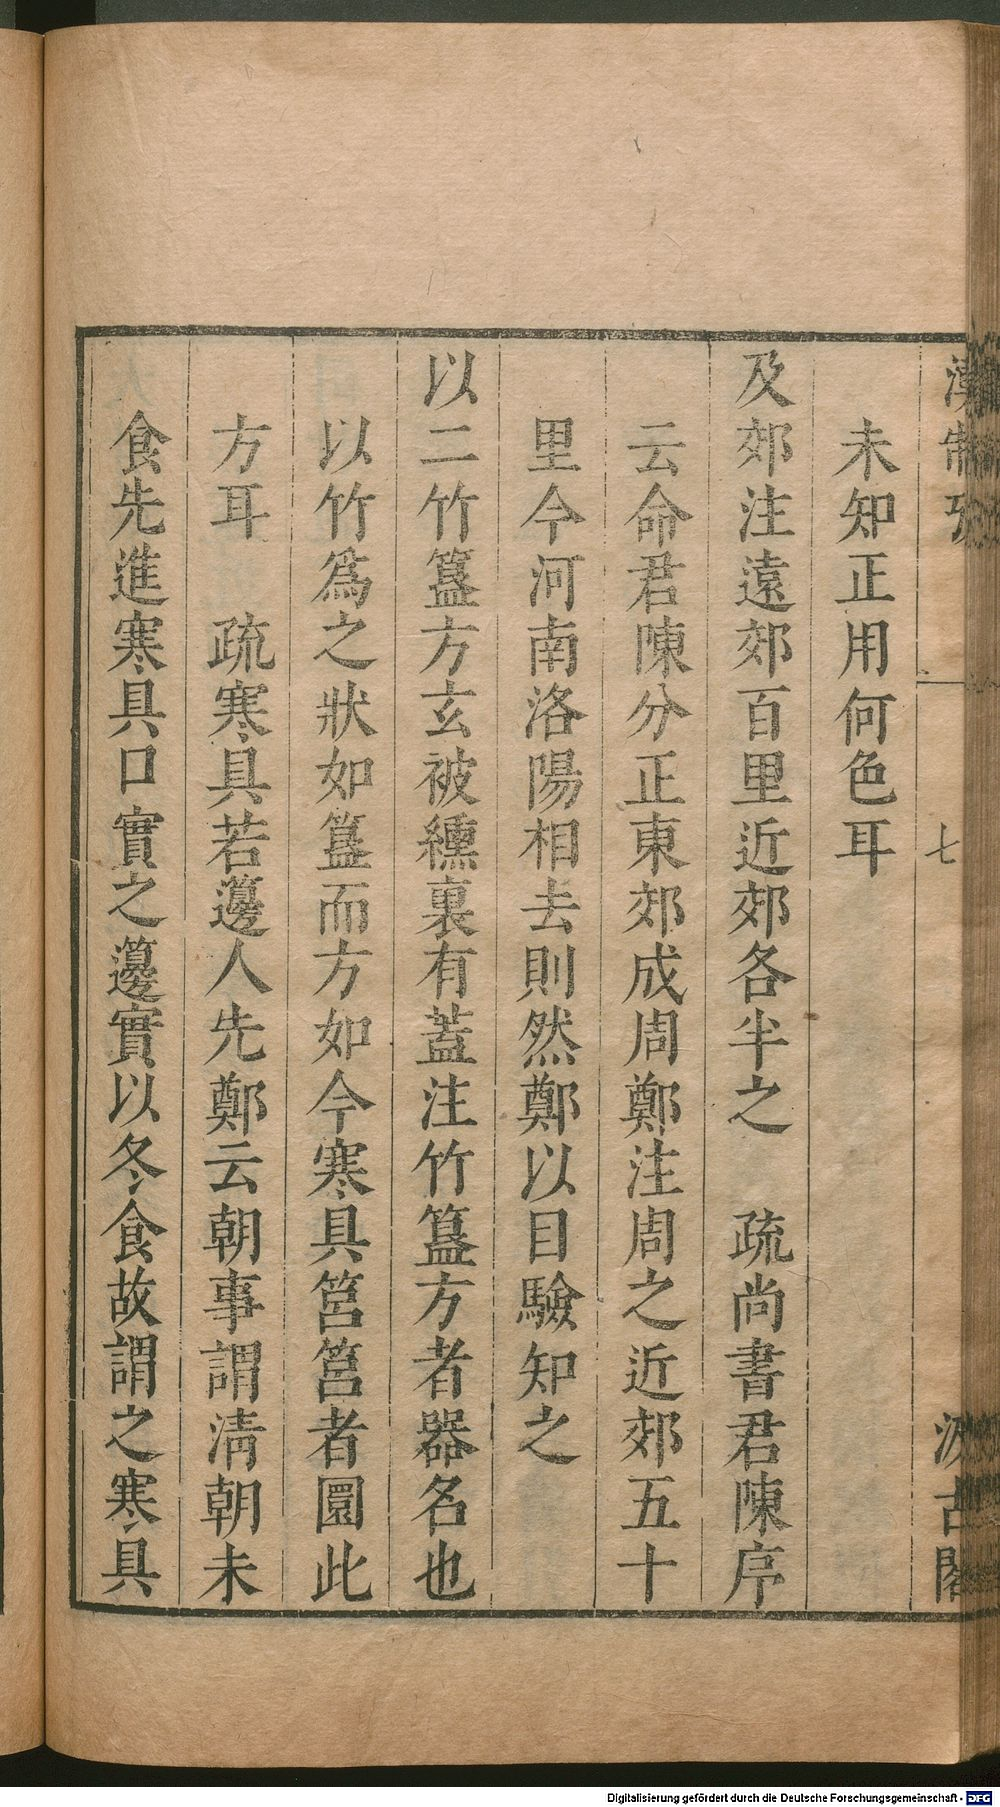 漢制攷 七 汲古閣
未知正用何色耳
及郊注遠郊百里近郊各半之 疏尚書君陳序
云命君陳分正東郊成周鄭注周之近郊五十
里今河南洛陽相去則然鄭以目驗知之
以二竹簋方玄被纁裏有蓋注竹簋方者器名也
以竹爲之狀如簋而方如今寒具筥筥者圜此
方耳 疏寒具若籩人先鄭云朝事謂淸朝未
食先進寒具口實之籩實以冬食故謂之寒具
Digitalisierung gefördert durch die Deutsche Forschungsgemeinschaft - DFG